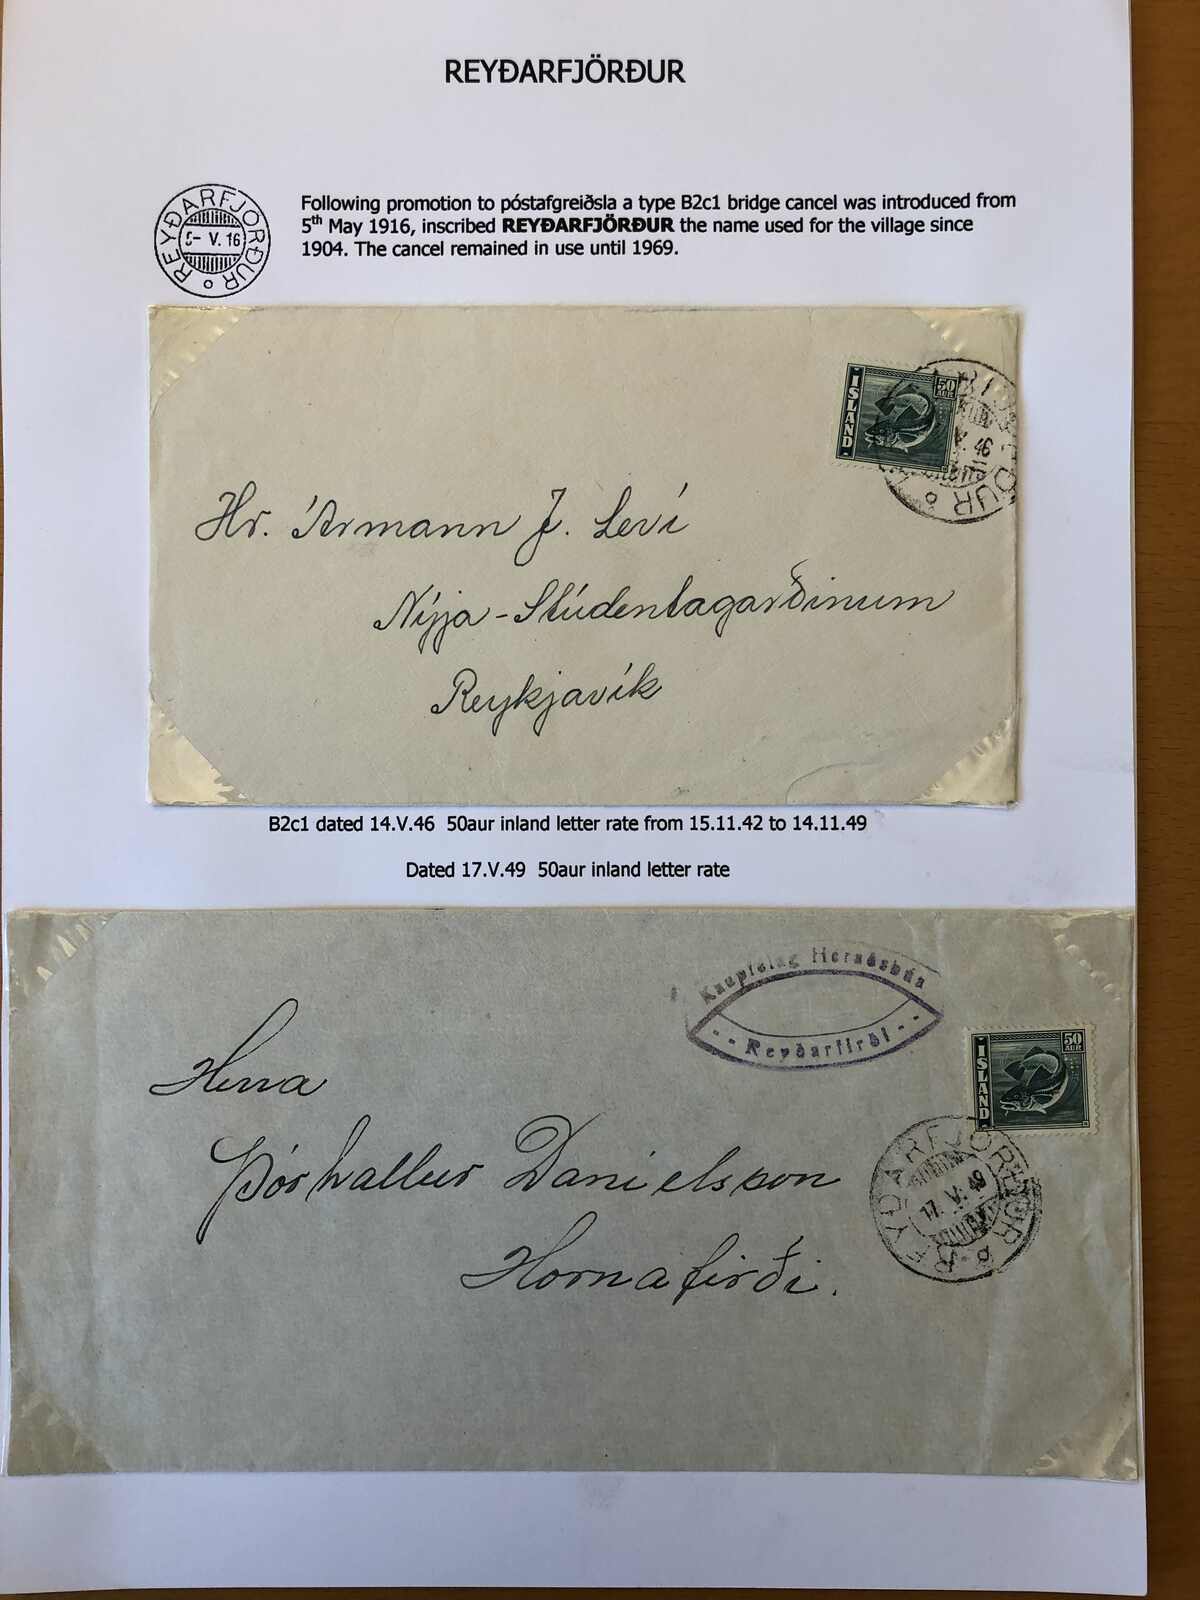 REYÐARFJÖRÐUR
REYÐARFJÖRÐUR
5- V. 16
Following promotion to póstafgreiðsla a type B2c1 bridge cancel was introduced from
5th May 1916, inscribed REYÐARFJÖRÐUR the name used for the village since
1904. The cancel remained in use until 1969.
50
AUR
ÍSLAND
V. 46
Hr. Ármann J. Leví
Nýja-Stúdentagarðinum
Reykjavík
B2c1 dated 14.V.46 50aur inland letter rate from 15.11.42 to 14.11.49
Dated 17.V.49 50aur inland letter rate
Kaupfélag Héraðsbúa
Reyðarfirði
50
AUR
ÍSLAND
REYÐARFJÖRÐUR
17. V. 49
Herra
Þórhallur Daníelsson
Hornafirði.